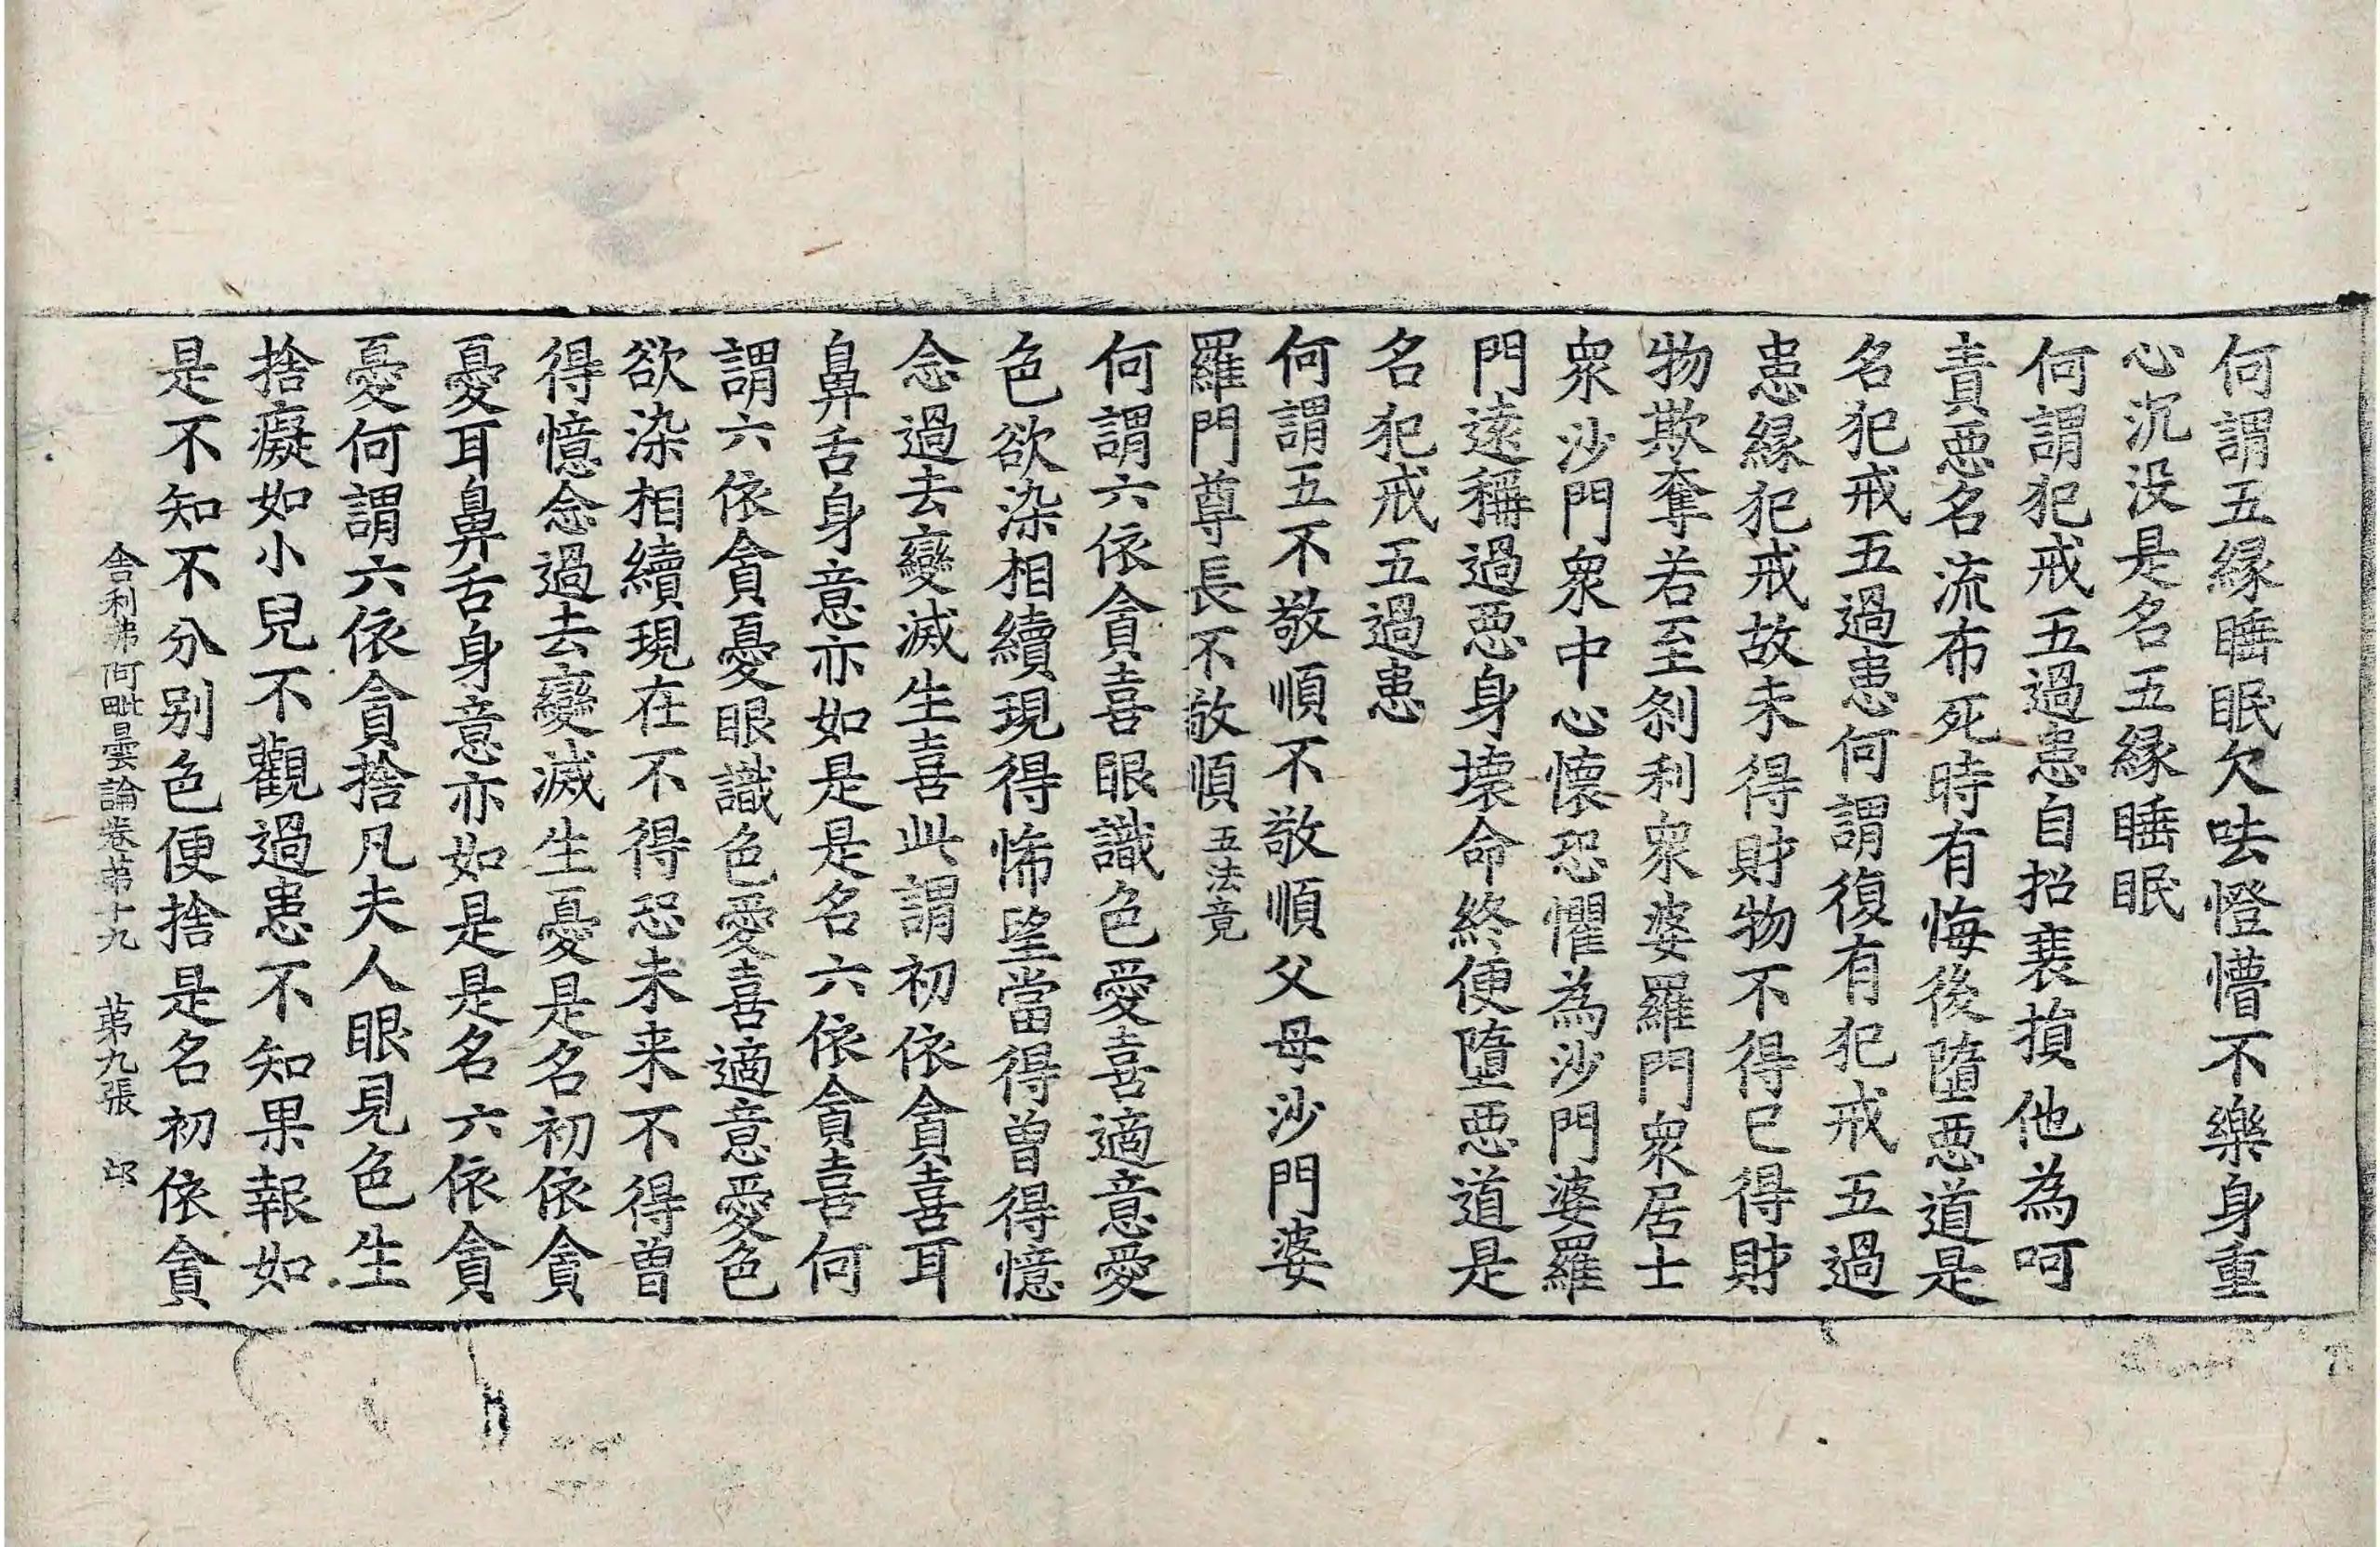 何謂五緣睡眠欠呿憕懵不樂身重
心沉沒是名五緣睡眠
何謂犯戒五過患自招衰損他為呵
責惡名流布死時有悔後墮惡道是
名犯戒五過患何謂復有犯戒五過
患緣犯戒故未得財物不得已得財
物欺奪若至剎利眾婆羅門眾居士
眾沙門眾中心懷恐懼為沙門婆羅
門遠稱過惡身壞命終便墮惡道是
名犯戒五過患
何謂五不敬順不敬順父母沙門婆
羅門尊長不敬順 五法竟
何謂六依貪喜眼識色愛喜適意愛
色欲染相續現得悕望當得曾得憶
念過去變滅生喜此謂初依貪喜耳
鼻舌身意亦如是是名六依貪喜何
謂六依貪憂眼識色愛喜適意愛色
欲染相續現在不得恐未来不得曾
得憶念過去變滅生憂是名初依貪
憂耳鼻舌身意亦如是是名六依貪
憂何謂六依貪捨凡夫人眼見色生
捨癡如小兒不觀過患不知果報如
是不知不分別色便捨是名初依貪
舍利弗阿毗曇論卷苐十九 苐九張